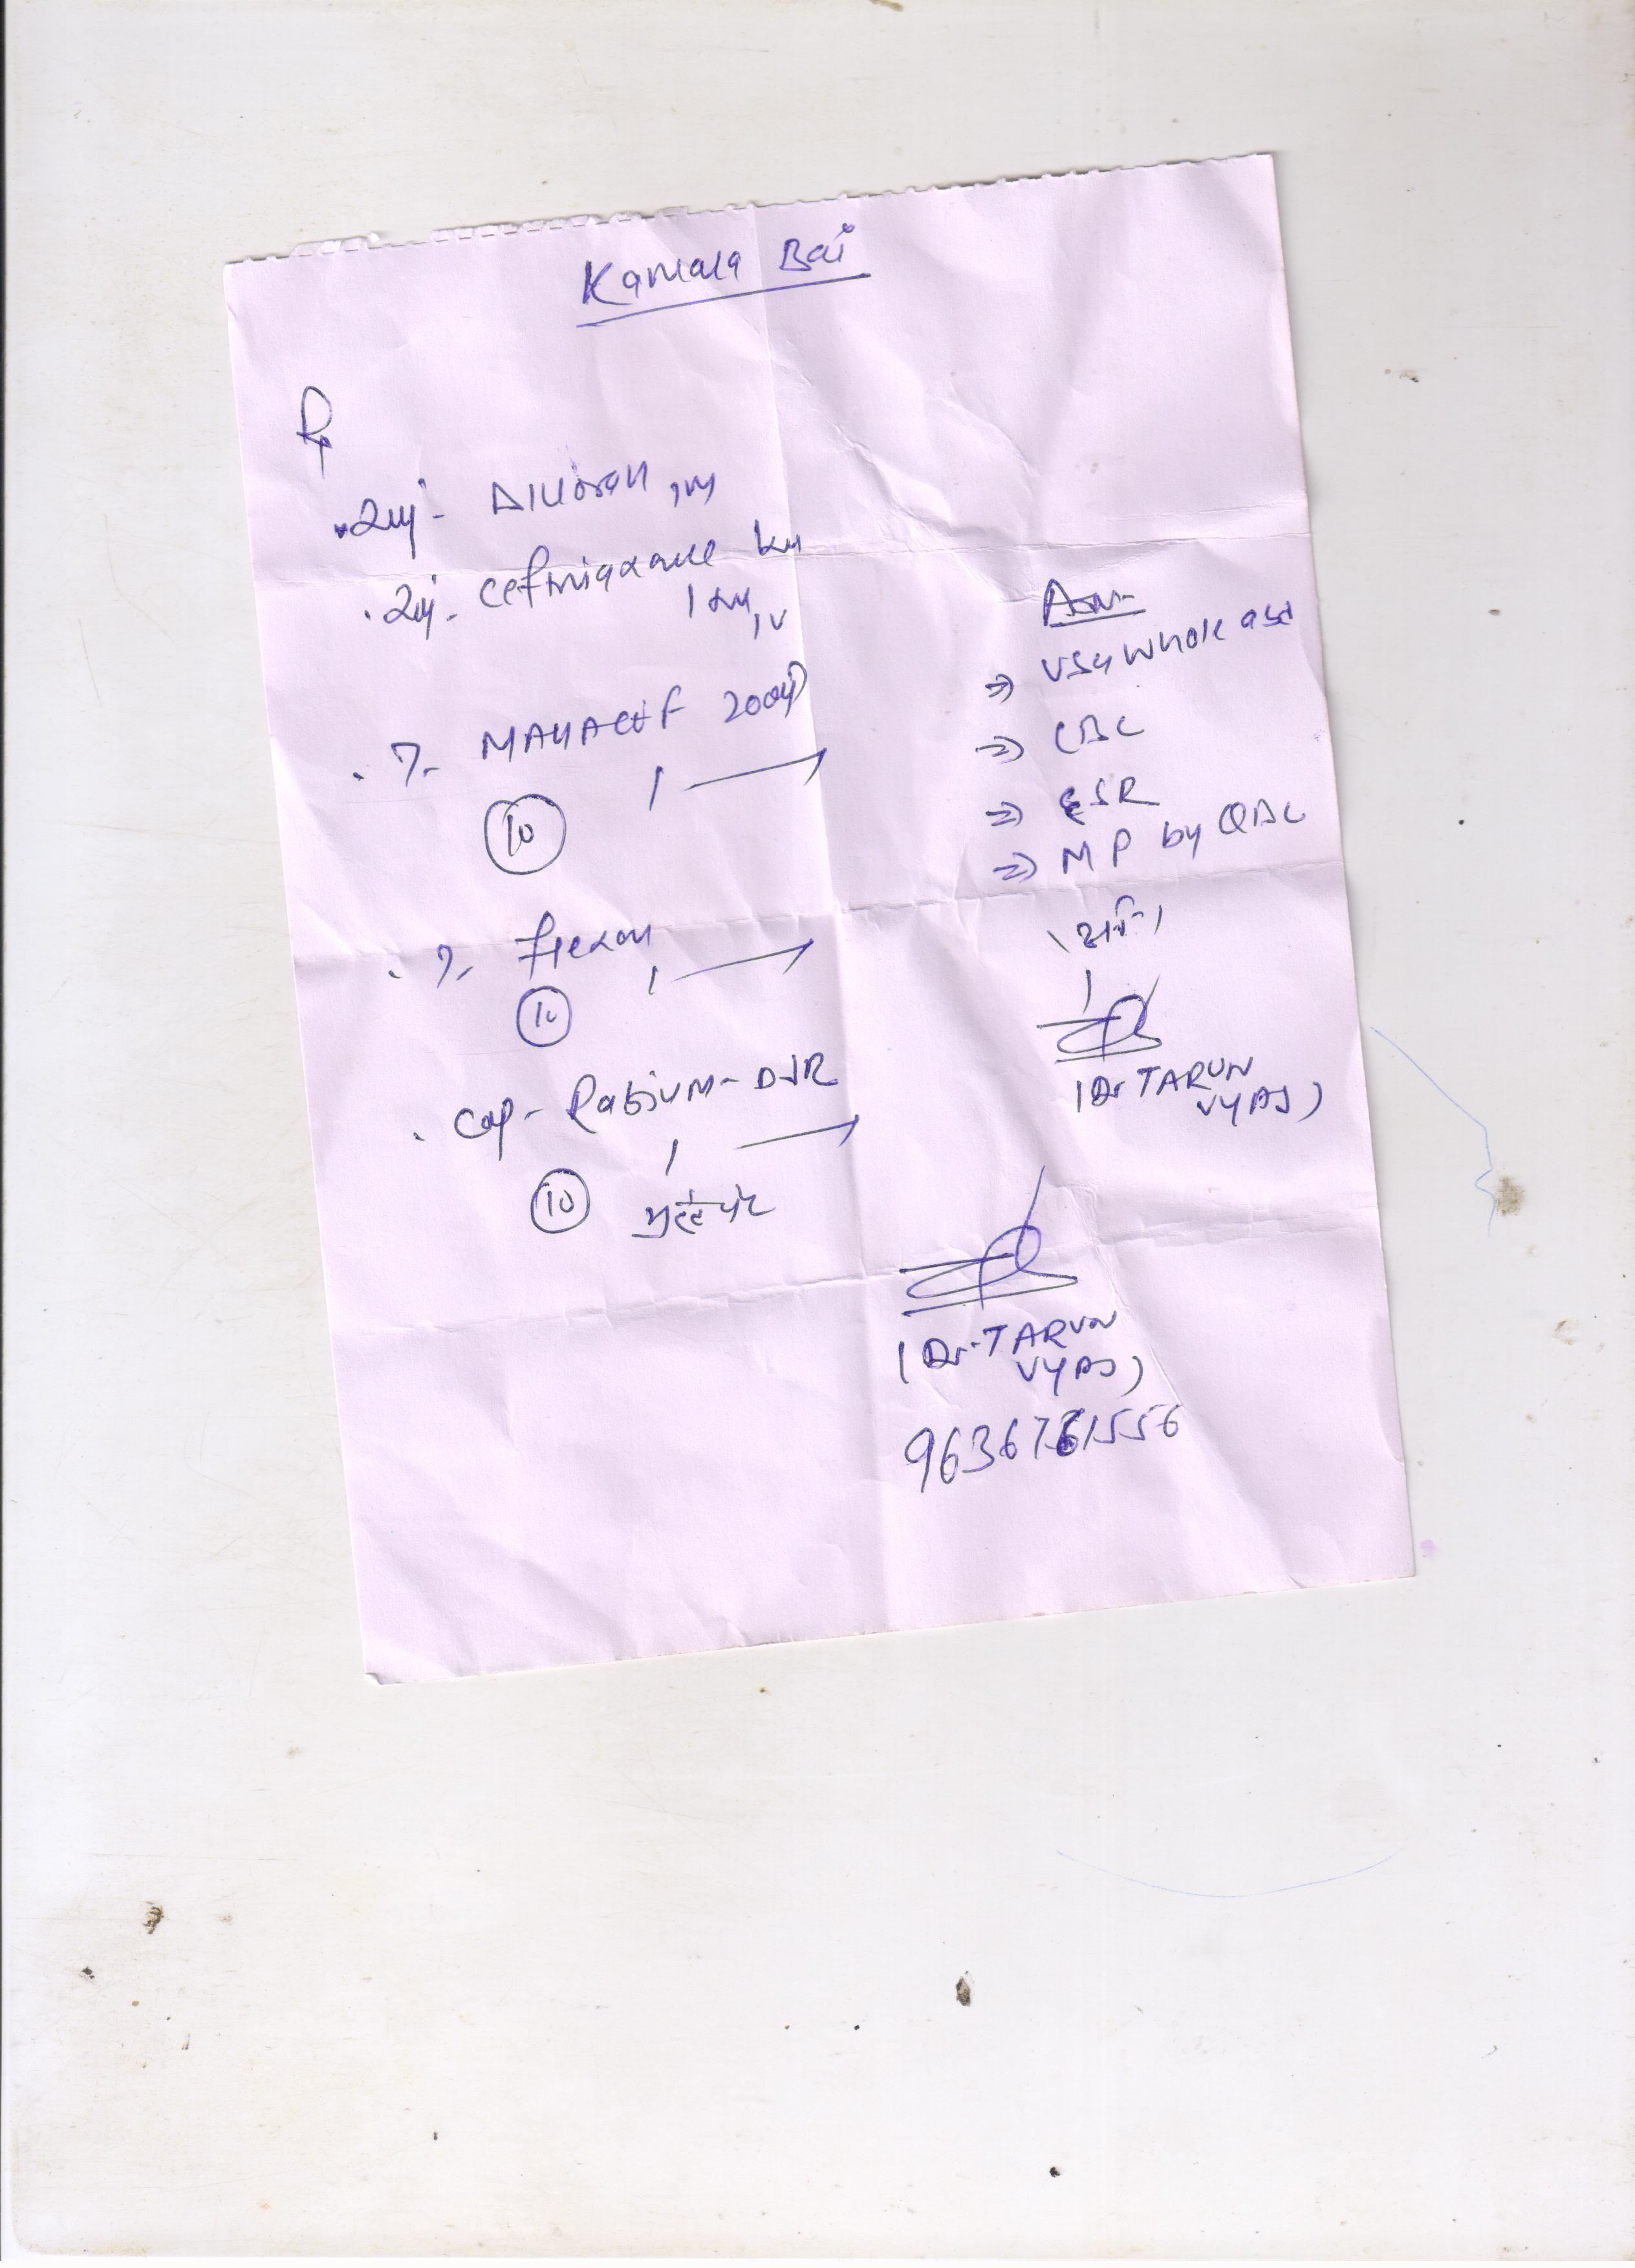 Kamala Bai
Rx
Inj- Dilloran im
Inj- Ceftriaxone
1 gm iv
T- MAHACEF 200mg
1
10
T- Flexon
1
10
Cap- Rabium-DSR
1
10
Adv-
⇒ USG whole abd
⇒ CBC
⇒ ESR
⇒ MP by QBC
(Dr TARUN
VYAS)
(Dr. TARUN
VYAS)
9636761556